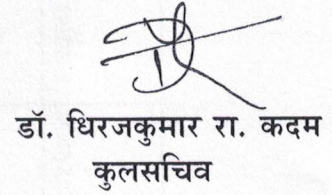 डॉ. धिरजकुमार रा. कदम
कुलसचिव